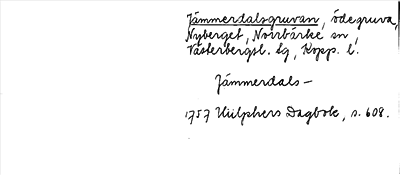 Jämmerdalsgruvan, ödegruva,
Nyberget, Norrbärke sn,
Västerbergsl. bg, Kopp. l.
Jämmerdals–
1757 Hülphers Dagbok, s. 608.